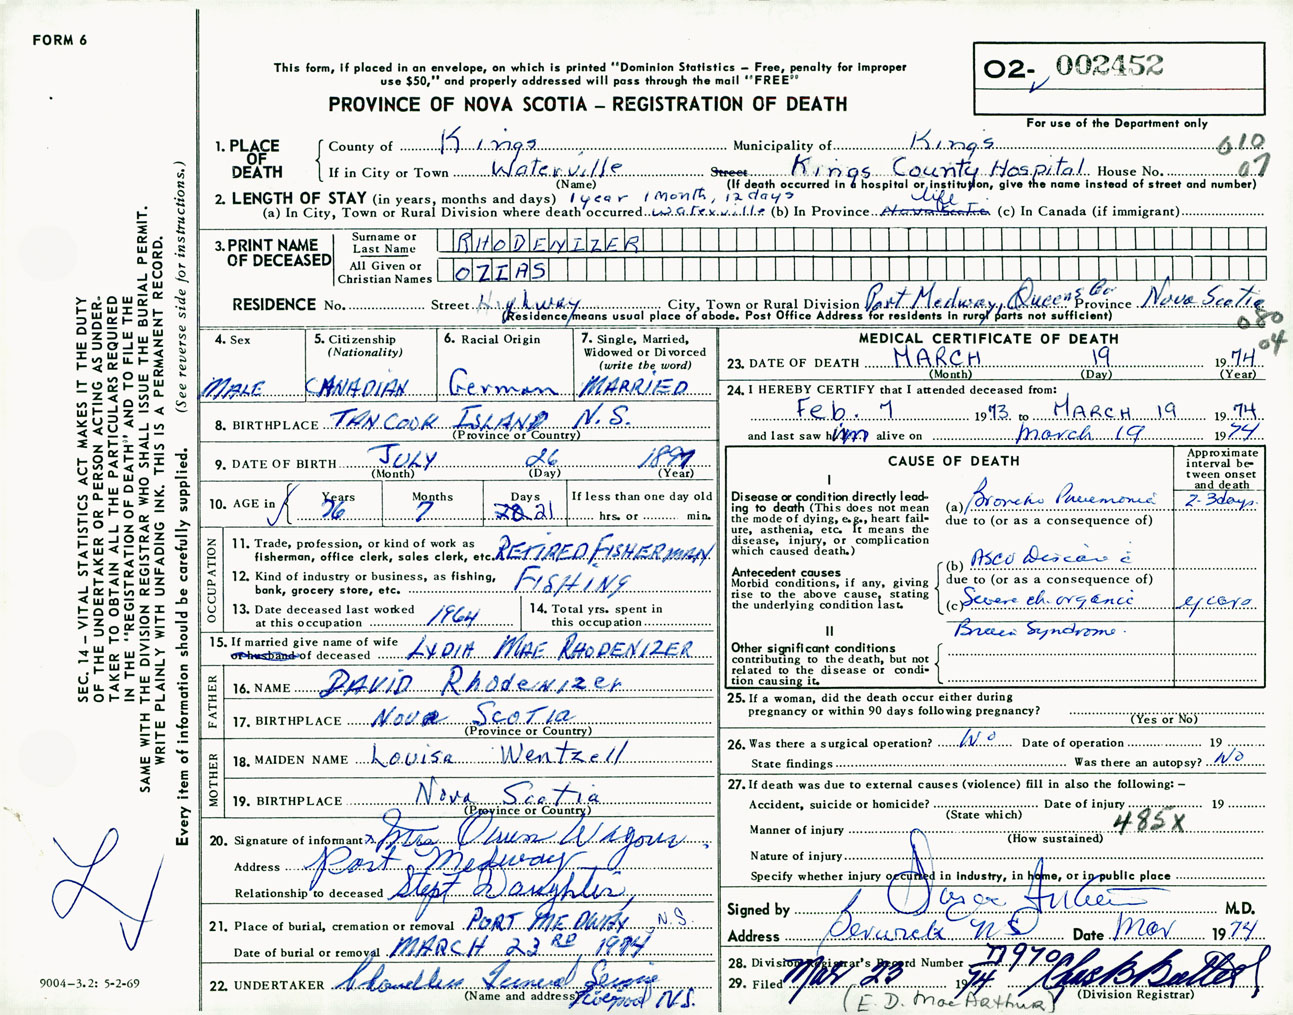 FORM 6
This form, if placed in an envelope, on which is printed "Dominion Statistics – Free, penalty for improper
use $50," and properly addressed will pass through the mail "FREE"
PROVINCE OF NOVA SCOTIA – REGISTRATION OF DEATH
O2- 002452
For use of the Department only
SEC. 14 – VITAL STATISTICS ACT MAKES IT THE DUTY
OF THE UNDERTAKER OR PERSON ACTING AS UNDER-
TAKER TO OBTAIN ALL THE PARTICULARS REQUIRED
IN THE "REGISTRATION OF DEATH" AND TO FILE THE
SAME WITH THE DIVISION REGISTRAR WHO SHALL ISSUE THE BURIAL PERMIT.
WRITE PLAINLY WITH UNFADING INK. THIS IS A PERMANENT RECORD.
Every item of information should be carefully supplied. (See reverse side for instructions.)
1. PLACE OF DEATH
County of Kings Municipality of Kings 010
If in City or Town Waterville Street Kings County Hospital House No. 07
(Name) (If death occurred in a hospital or institution, give the name instead of street and number)
2. LENGTH OF STAY (in years, months and days) 1 year 1 month, 12 days life
(a) In City, Town or Rural Division where death occurred Waterville (b) In Province Nova Scotia (c) In Canada (if immigrant)
3. PRINT NAME OF DECEASED
Surname or Last Name RHODENIZER
All Given or Christian Names OZIAS
RESIDENCE No. Street Highway City, Town or Rural Division Port Medway, Queens Co Province Nova Scotia
(Residence means usual place of abode. Post Office Address for residents in rural parts not sufficient)
080
04
4. Sex MALE
5. Citizenship (Nationality) CANADIAN
6. Racial Origin German
7. Single, Married, Widowed or Divorced (write the word) MARRIED
8. BIRTHPLACE TANCOOK ISLAND N.S.
(Province or Country)
9. DATE OF BIRTH JULY 26 1897
(Month) (Day) (Year)
10. AGE in Years 76 Months 7 Days 28 21 If less than one day old
hrs. or min.
OCCUPATION
11. Trade, profession, or kind of work as
fisherman, office clerk, sales clerk, etc. RETIRED FISHERMAN
12. Kind of industry or business, as fishing,
bank, grocery store, etc. FISHING
13. Date deceased last worked
at this occupation 1964
14. Total yrs. spent in
this occupation
15. If married give name of wife
or husband of deceased LYDIA MAE RHODENIZER
FATHER
16. NAME DAVID Rhodenizer
17. BIRTHPLACE NOVA SCOTIA
(Province or Country)
MOTHER
18. MAIDEN NAME Louisa Wentzell
19. BIRTHPLACE Nova Scotia
(Province or Country)
20. Signature of informant x Mrs Owen Wagner
Address Port Medway
Relationship to deceased Stept Daughter
21. Place of burial, cremation or removal PORT MEDWAY, N.S.
Date of burial or removal MARCH 23RD 1974
22. UNDERTAKER Chandlers Funeral Service
(Name and address) Liverpool N.S.
MEDICAL CERTIFICATE OF DEATH
23. DATE OF DEATH MARCH 19 1974
(Month) (Day) (Year)
24. I HEREBY CERTIFY that I attended deceased from:
Feb. 7 1973 to MARCH 19 1974
and last saw him alive on March 19 1974
CAUSE OF DEATH
Approximate interval between onset and death
I
Disease or condition directly lead-
ing to death (This does not
mean the mode of dying, e.g., heart fail-
ure, asthenia, etc. It means the
disease, injury, or complication
which caused death.)
(a) Broncho Pneumonia 2-3 days.
due to (or as a consequence of)
Antecedent causes
Morbid conditions, if any, giving
rise to the above cause, stating
the underlying condition last.
(b) ASCV Disease c
due to (or as a consequence of)
(c) Severe ch. organic years
Brain Syndrome.
II
Other significant conditions
contributing to the death, but not
related to the disease or condi-
tion causing it.
25. If a woman, did the death occur either during
pregnancy or within 90 days following pregnancy?
(Yes or No)
26. Was there a surgical operation? No Date of operation 19
State findings Was there an autopsy? No
27. If death was due to external causes (violence) fill in also the following: –
Accident, suicide or homicide? Date of injury 19
(State which)
Manner of injury 485X
(How sustained)
Nature of injury
Specify whether injury occurred in industry, in home, or in public place
Signed by M.D.
Address Berwick NS Date Mar 1974
28. Division Registrar's Record Number 77970
29. Filed Mar 23 1974
(Division Registrar)
(E. D. MacArthur)
9004-3.2: 5-2-69